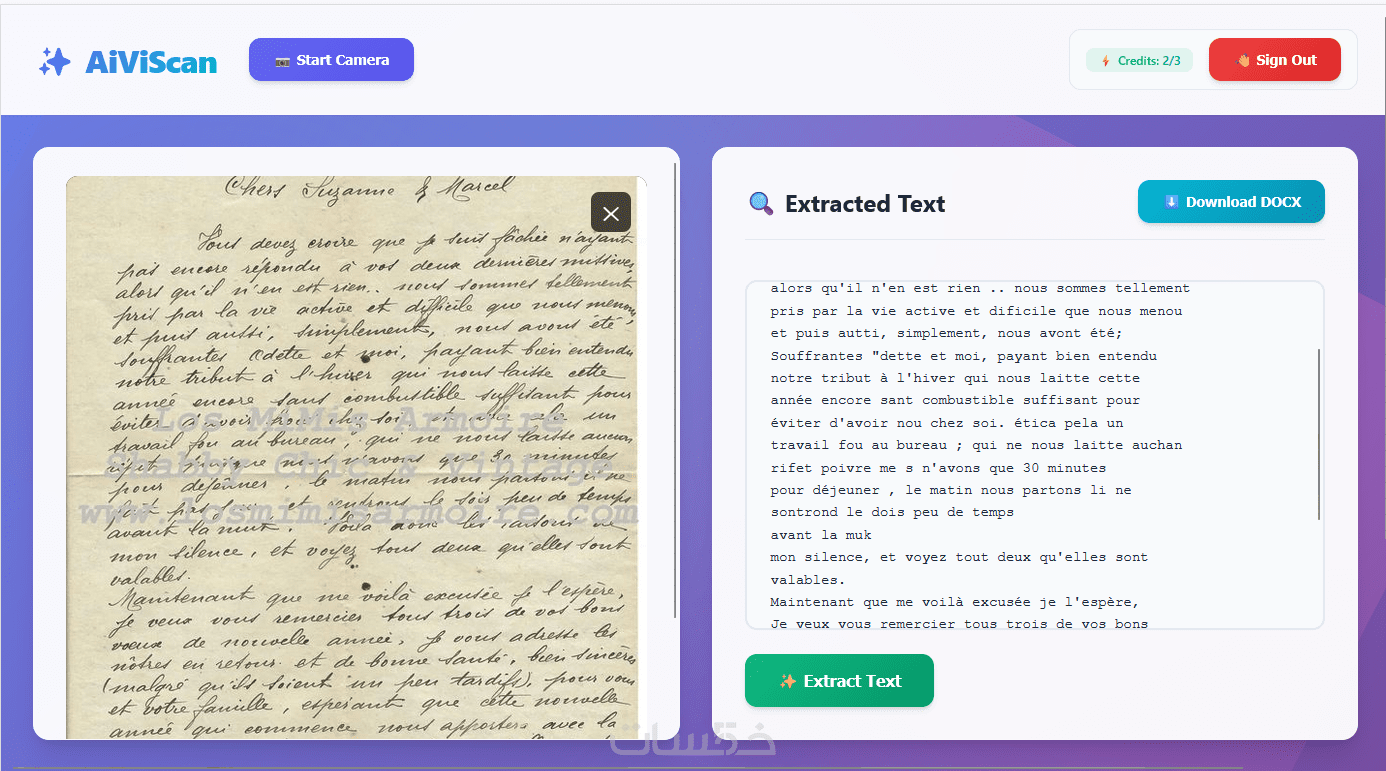 AiViScan
Start Camera
Credits: 2/3
Sign Out
Chers Suzanne & Marcel
Vous devez croire que je suis fâchée n'ayant
pas encore répondu à vos deux dernières missives,
alors qu'il n'en est rien.. nous sommes tellement
pris par la vie active et difficile que nous menons
et puis aussi, simplement, nous avons été
souffrantes Odette et moi, payant bien entendu
notre tribut à l'hiver qui nous laisse cette
année encore sans combustible suffisant pour
éviter d'avoir froid chez soi. et
un
travail fou au bureau, qui ne nous laisse aucun
répit puisque nous n'avons que 30 minutes
pour déjeuner, le matin nous partons il ne
fait pas jour et rentrons le soir peu de temps
avant la nuit. Voilà donc les raisons de
mon silence, et voyez tous deux qu'elles sont
valables.
Maintenant que me voilà excusée je l'espère,
je veux vous remercier tous trois de vos bons
voeux de nouvelle année, je vous adresse les
nôtres en retour et de bonne santé, bien sincères
(malgré qu'ils soient un peu tardifs), pour vous
et votre famille, espérant que cette nouvelle
année qui commence nous apportera avec la
Los MiMis Armoire
Shabby Chic & Vintage
www.losmimisarmoire.com
Extracted Text
Download DOCX
alors qu'il n'en est rien .. nous sommes tellement
pris par la vie active et dificile que nous menou
et puis autti, simplement, nous avont été;
Souffrantes "dette et moi, payant bien entendu
notre tribut à l'hiver qui nous laitte cette
année encore sant combustible suffisant pour
éviter d'avoir nou chez soi. ética pela un
travail fou au bureau ; qui ne nous laitte auchan
rifet poivre me s n'avons que 30 minutes
pour déjeuner , le matin nous partons li ne
sontrond le dois peu de temps
avant la muk
mon silence, et voyez tout deux qu'elles sont
valables.
Maintenant que me voilà excusée je l'espère,
Je veux vous remercier tous trois de vos bons
Extract Text
خمسات